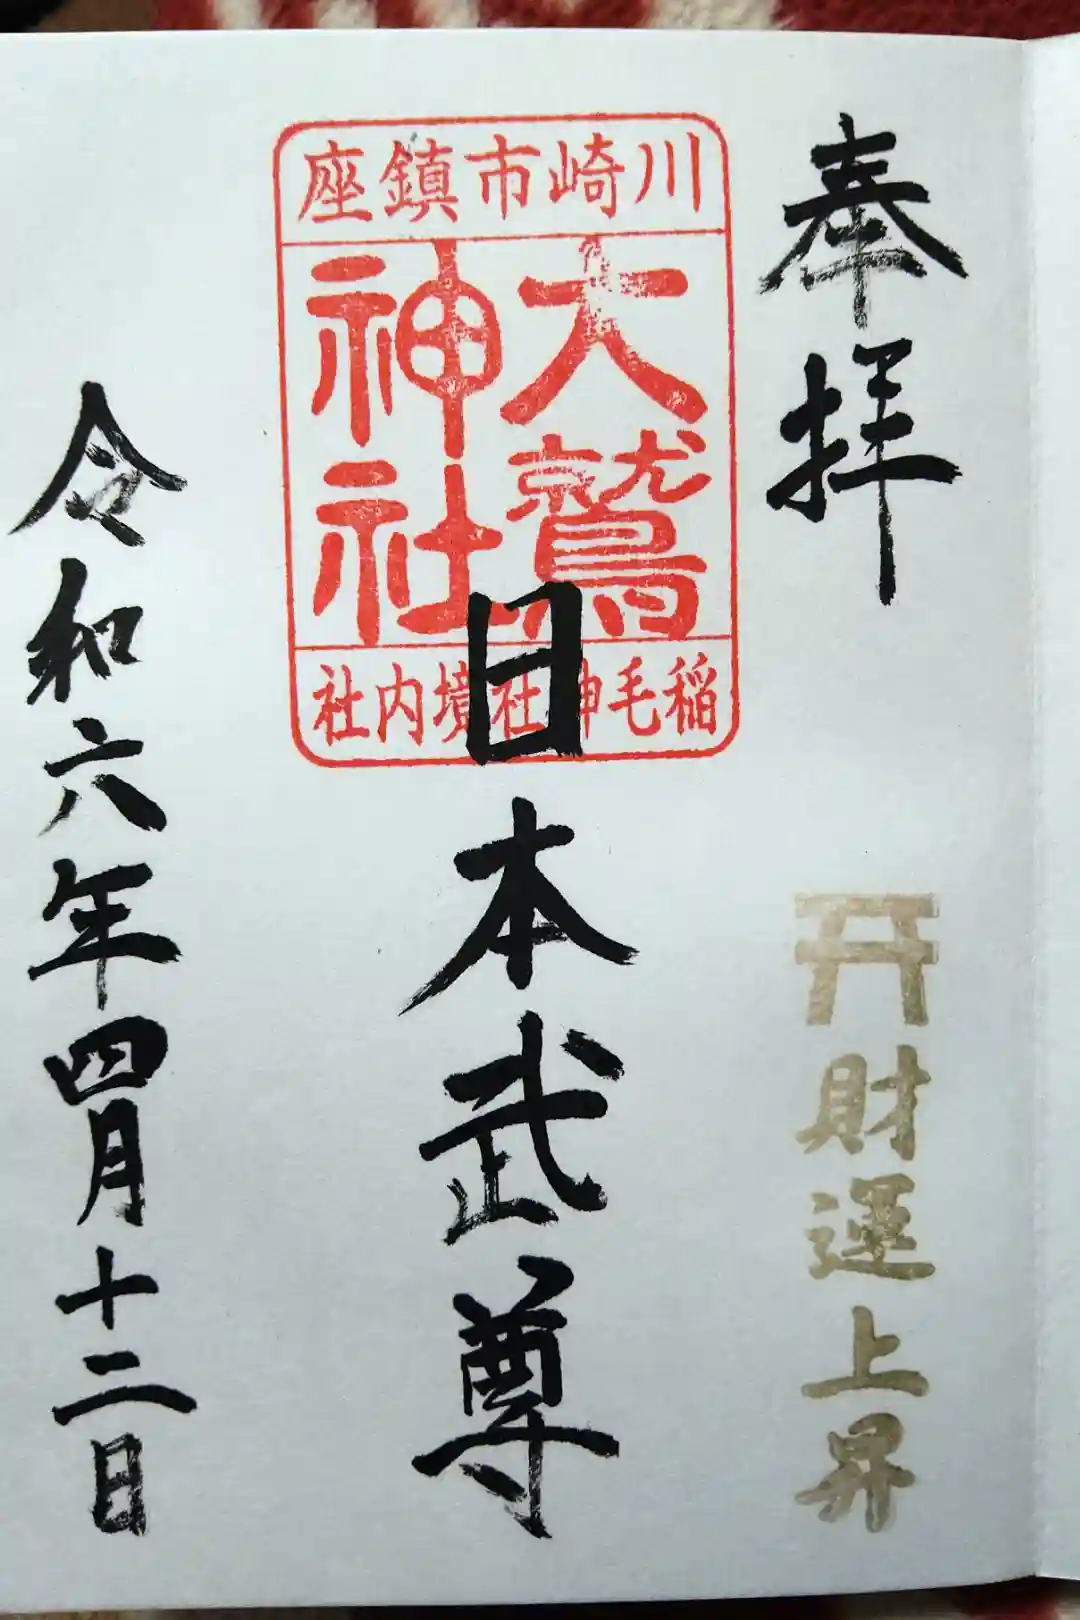 奉拝
財運上昇
川崎市鎮座
大鷲
神社
稲毛神社境内社
日本武尊
令和六年四月十二日